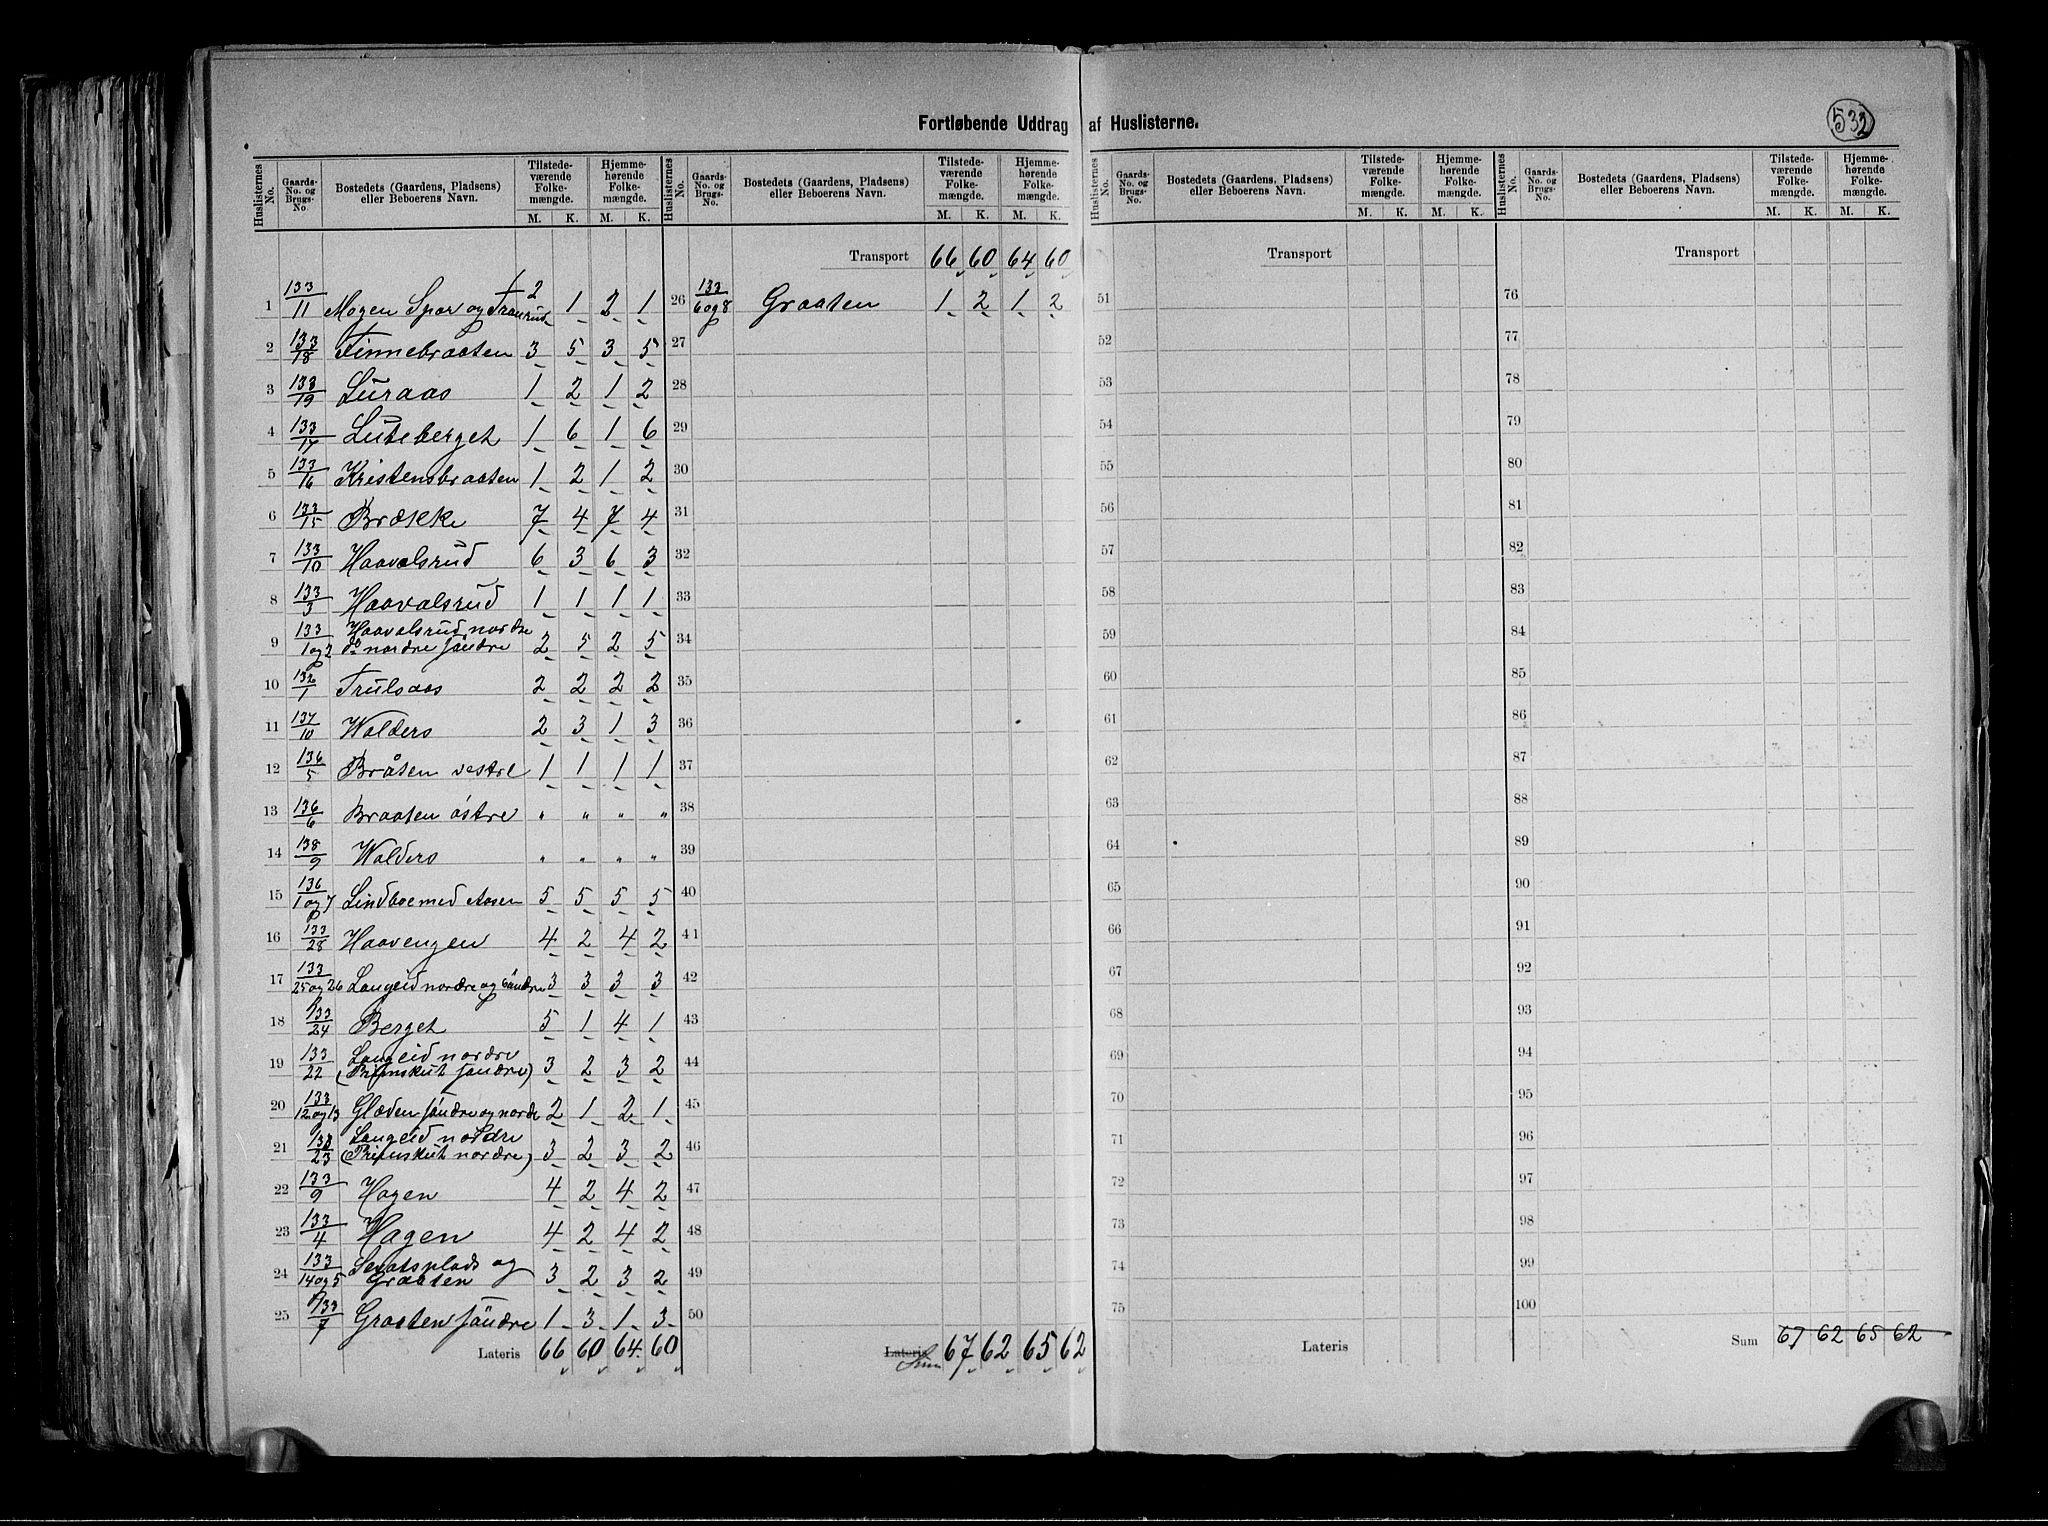 532
Fortløbende Uddrag af Huslisterne.
Huslisternes No. Gaards-No. og Brugs-No. Bostedets (Gaardens, Pladsens) eller Beboerens Navn. Tilstedeværende Folkemængde. M. K. Hjemmehørende Folkemængde. M. K.
1 133/11 Mogen Spor og 2 1 2 1
2 133/18 Finnebraaten 3 5 3 5
3 133/19 Luraas 1 2 1 2
4 133/17 Luteberget 1 6 1 6
5 133/16 Kristensbraaten 1 2 1 2
6 133/15 Brække 7 4 7 4
7 133/10 Haavalsrud 6 3 6 3
8 133/3 Haavalsrud 1 1 1 1
9 133/1 og 2 Haavalsrud nordre
do nordre søndre 2 5 2 5
10 132/1 Trulsaas 2 2 2 2
11 137/10 Walders 2 3 1 3
12 136/5 Bråten vestre 1 1 1 1
13 136/6 Braaten östre " " " "
14 138/9 Walders " " " "
15 136/1 og 7 Lindboe med Aasen 5 5 5 5
16 133/28 Haavengen 4 2 4 2
17 133/25 og 26 Langeid nordre og søndre 3 3 3 3
18 133/24 Berget 5 1 4 1
19 133/22 Langeid nordre
søndre) 3 2 3 2
20 133/12 og 13 Glæden søndre og nordre 2 1 2 1
21 133/23 Langeid nordre
nordre) 3 2 3 2
22 133/9 Hagen 4 2 4 2
23 133/4 Hagen 4 2 4 2
24 133/14 og 5 og
Graaten 3 2 3 2
25 133/7 Graaten söndre 1 3 1 3
Lateris 66 60 64 60
Huslisternes No. Gaards-No. og Brugs-No. Bostedets (Gaardens, Pladsens) eller Beboerens Navn. Tilstedeværende Folkemængde. M. K. Hjemmehørende Folkemængde. M. K.
Transport 66 60 64 60
26 133/6 og 8 Graaten 1 2 1 2
27
28
29
30
31
32
33
34
35
36
37
38
39
40
41
42
43
44
45
46
47
48
49
50
Lateris Sum 67 62 65 62
Huslisternes No. Gaards-No. og Brugs-No. Bostedets (Gaardens, Pladsens) eller Beboerens Navn. Tilstedeværende Folkemængde. M. K. Hjemmehørende Folkemængde. M. K.
Transport
51
52
53
54
55
56
57
58
59
60
61
62
63
64
65
66
67
68
69
70
71
72
73
74
75
Lateris
Huslisternes No. Gaards-No. og Brugs-No. Bostedets (Gaardens, Pladsens) eller Beboerens Navn. Tilstedeværende Folkemængde. M. K. Hjemmehørende Folkemængde. M. K.
Transport
76
77
78
79
80
81
82
83
84
85
86
87
88
89
90
91
92
93
94
95
96
97
98
99
100
Sum 67 62 65 62